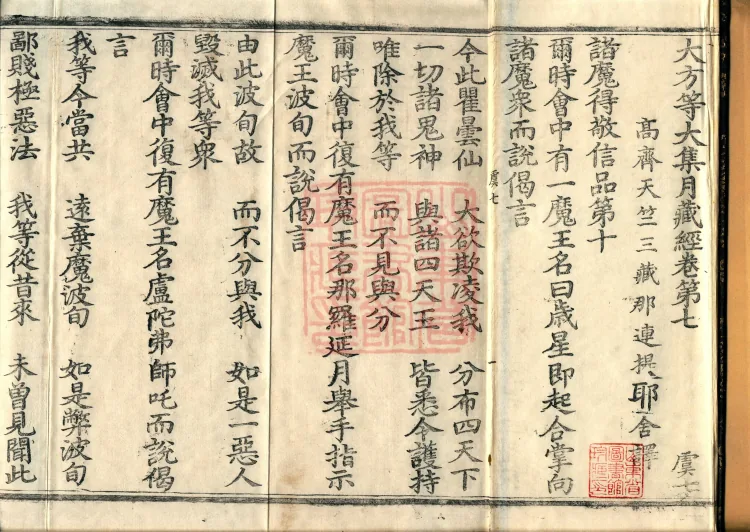 大方等大集月藏經卷第七 虞七
高齊天竺三藏那連提耶舍譯
諸魔得敬信品第十
爾時會中有一魔王名曰歲星即起合掌向
諸魔衆而說偈言
虞七
今此瞿曇仙 大欲欺凌我 分布四天下
一切諸鬼神 與諸四天王 皆悉令護持
唯除於我等 而不見與分
爾時會中復有魔王名那羅延月舉手指示
魔王波旬而說偈言
由此波旬故 而不分與我 如是一惡人
毀滅我等衆
爾時會中復有魔王名盧陀弗師吒而說偈
言
我等今當共 遠棄魔波旬 如是弊波旬
鄙賤極惡法 我等從昔來 未曾見聞此